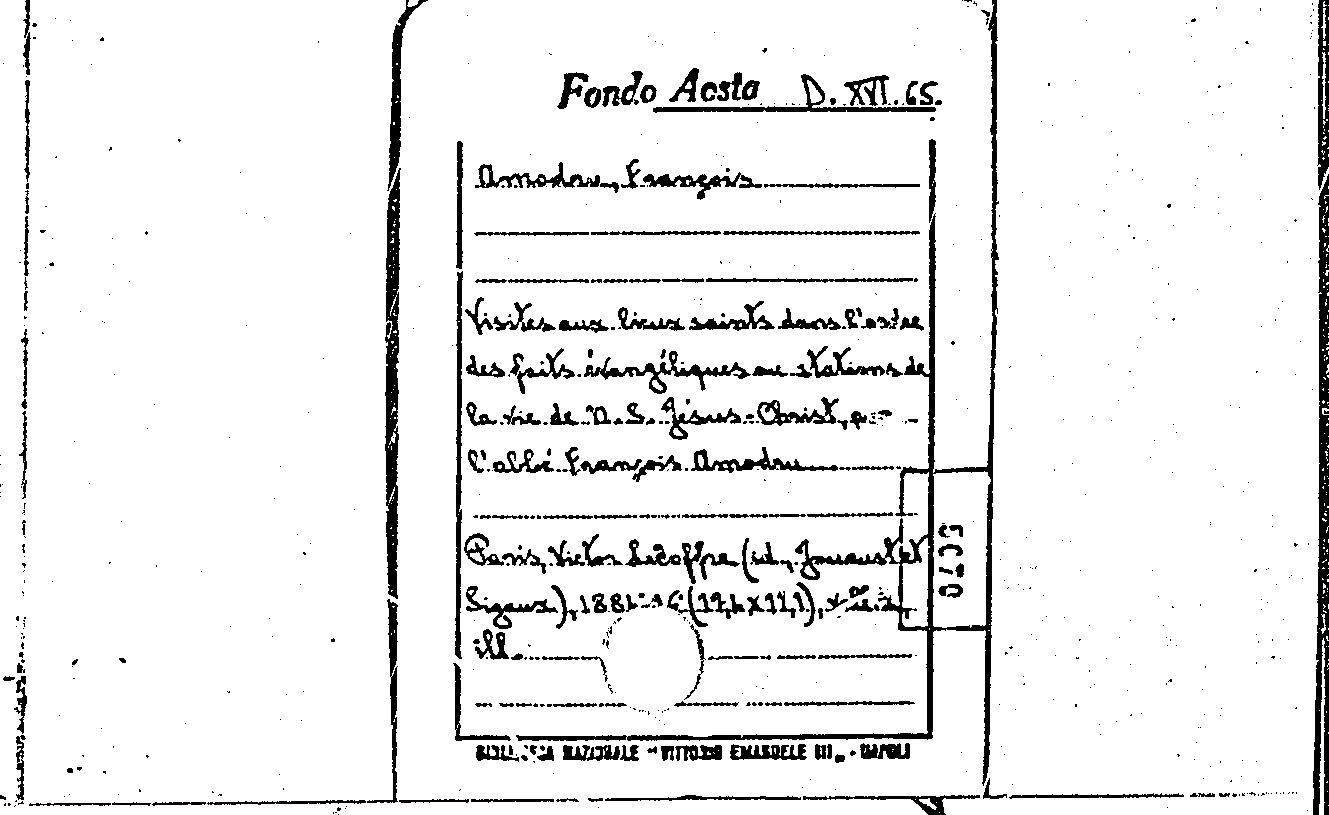 Fondo Aosta D. XVI. 65.
Amodru, François
Visites aux lieux saints dans l'ordre
des faits évangéliques ou stations de
la vie de N. S. Jésus-Christ,
l'abbé François Amodru
Paris, Victor Lecoffre (id., Jouaust et
Sigaux),
ill.
BIBLIOTECA NAZIONALE "VITTORIO EMANUELE III„ - NAPOLI